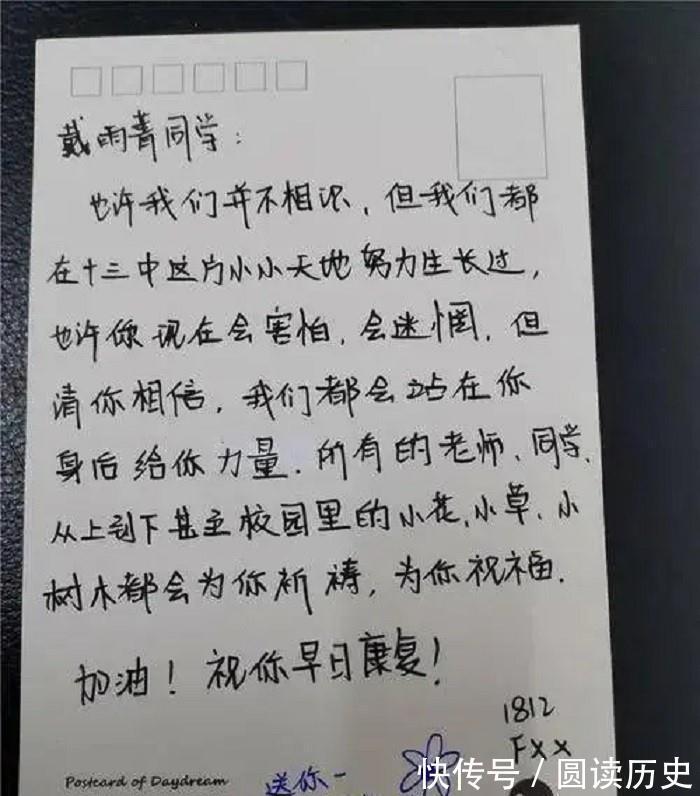 戴雨菁同学:
也许我们并不相识,但我们都
在十三中这片小小天地努力生长过,
也许你现在会害怕,会迷惘,但
请你相信,我们都会站在你
身后给你力量.所有的老师、同学、
从上到下甚至校园里的小花,小草、小
树木都会为你祈祷,为你祝福.
加油!祝你早日康复!
1812
Fxx
Postcard of Daydream
送你一
快传号/圆读历史